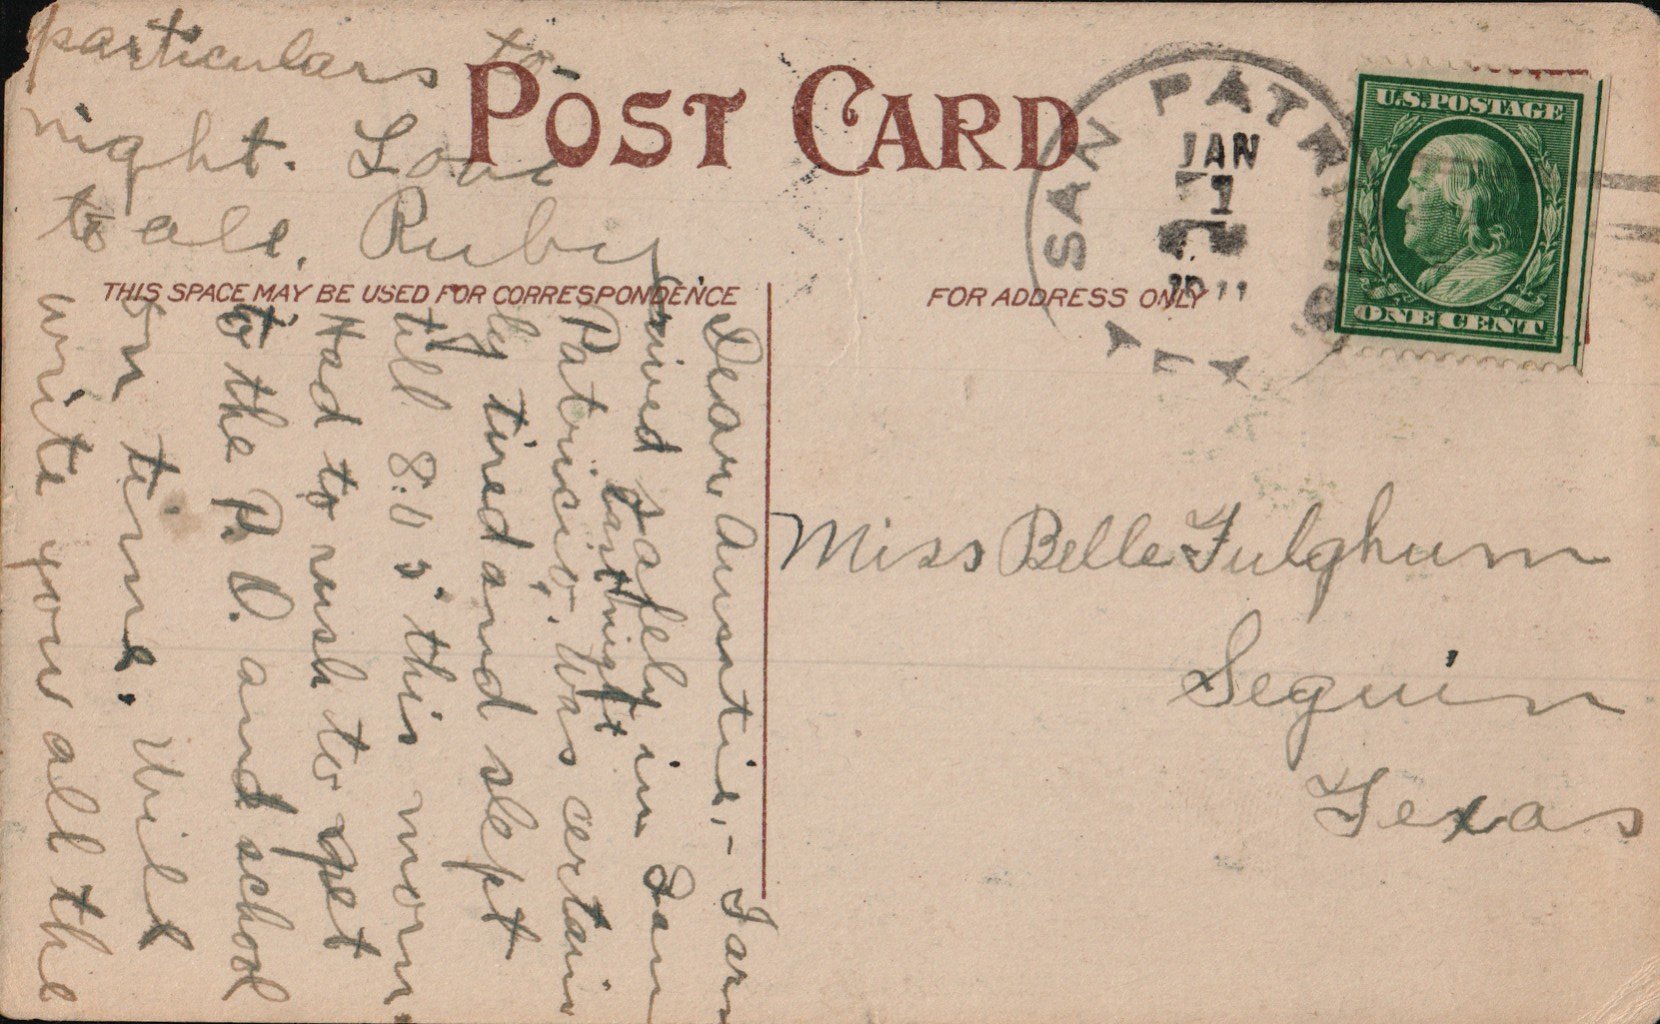 POST CARD
THIS SPACE MAY BE USED FOR CORRESPONDENCE
FOR ADDRESS ONLY
SAN PATRICIO
JAN
1
1911
U.S. POSTAGE
ONE CENT
Miss Belle Fulghum
Seguin
Texas
Dear Auntie,- I ar
rived safely in San
last night
Patricio. Was certain
ly tired and slept
till 8:05 this morn
Had to rush to get
to the P. O. and school
on time. Will
write you all the
particulars to-
night. Love
to all. Ruby